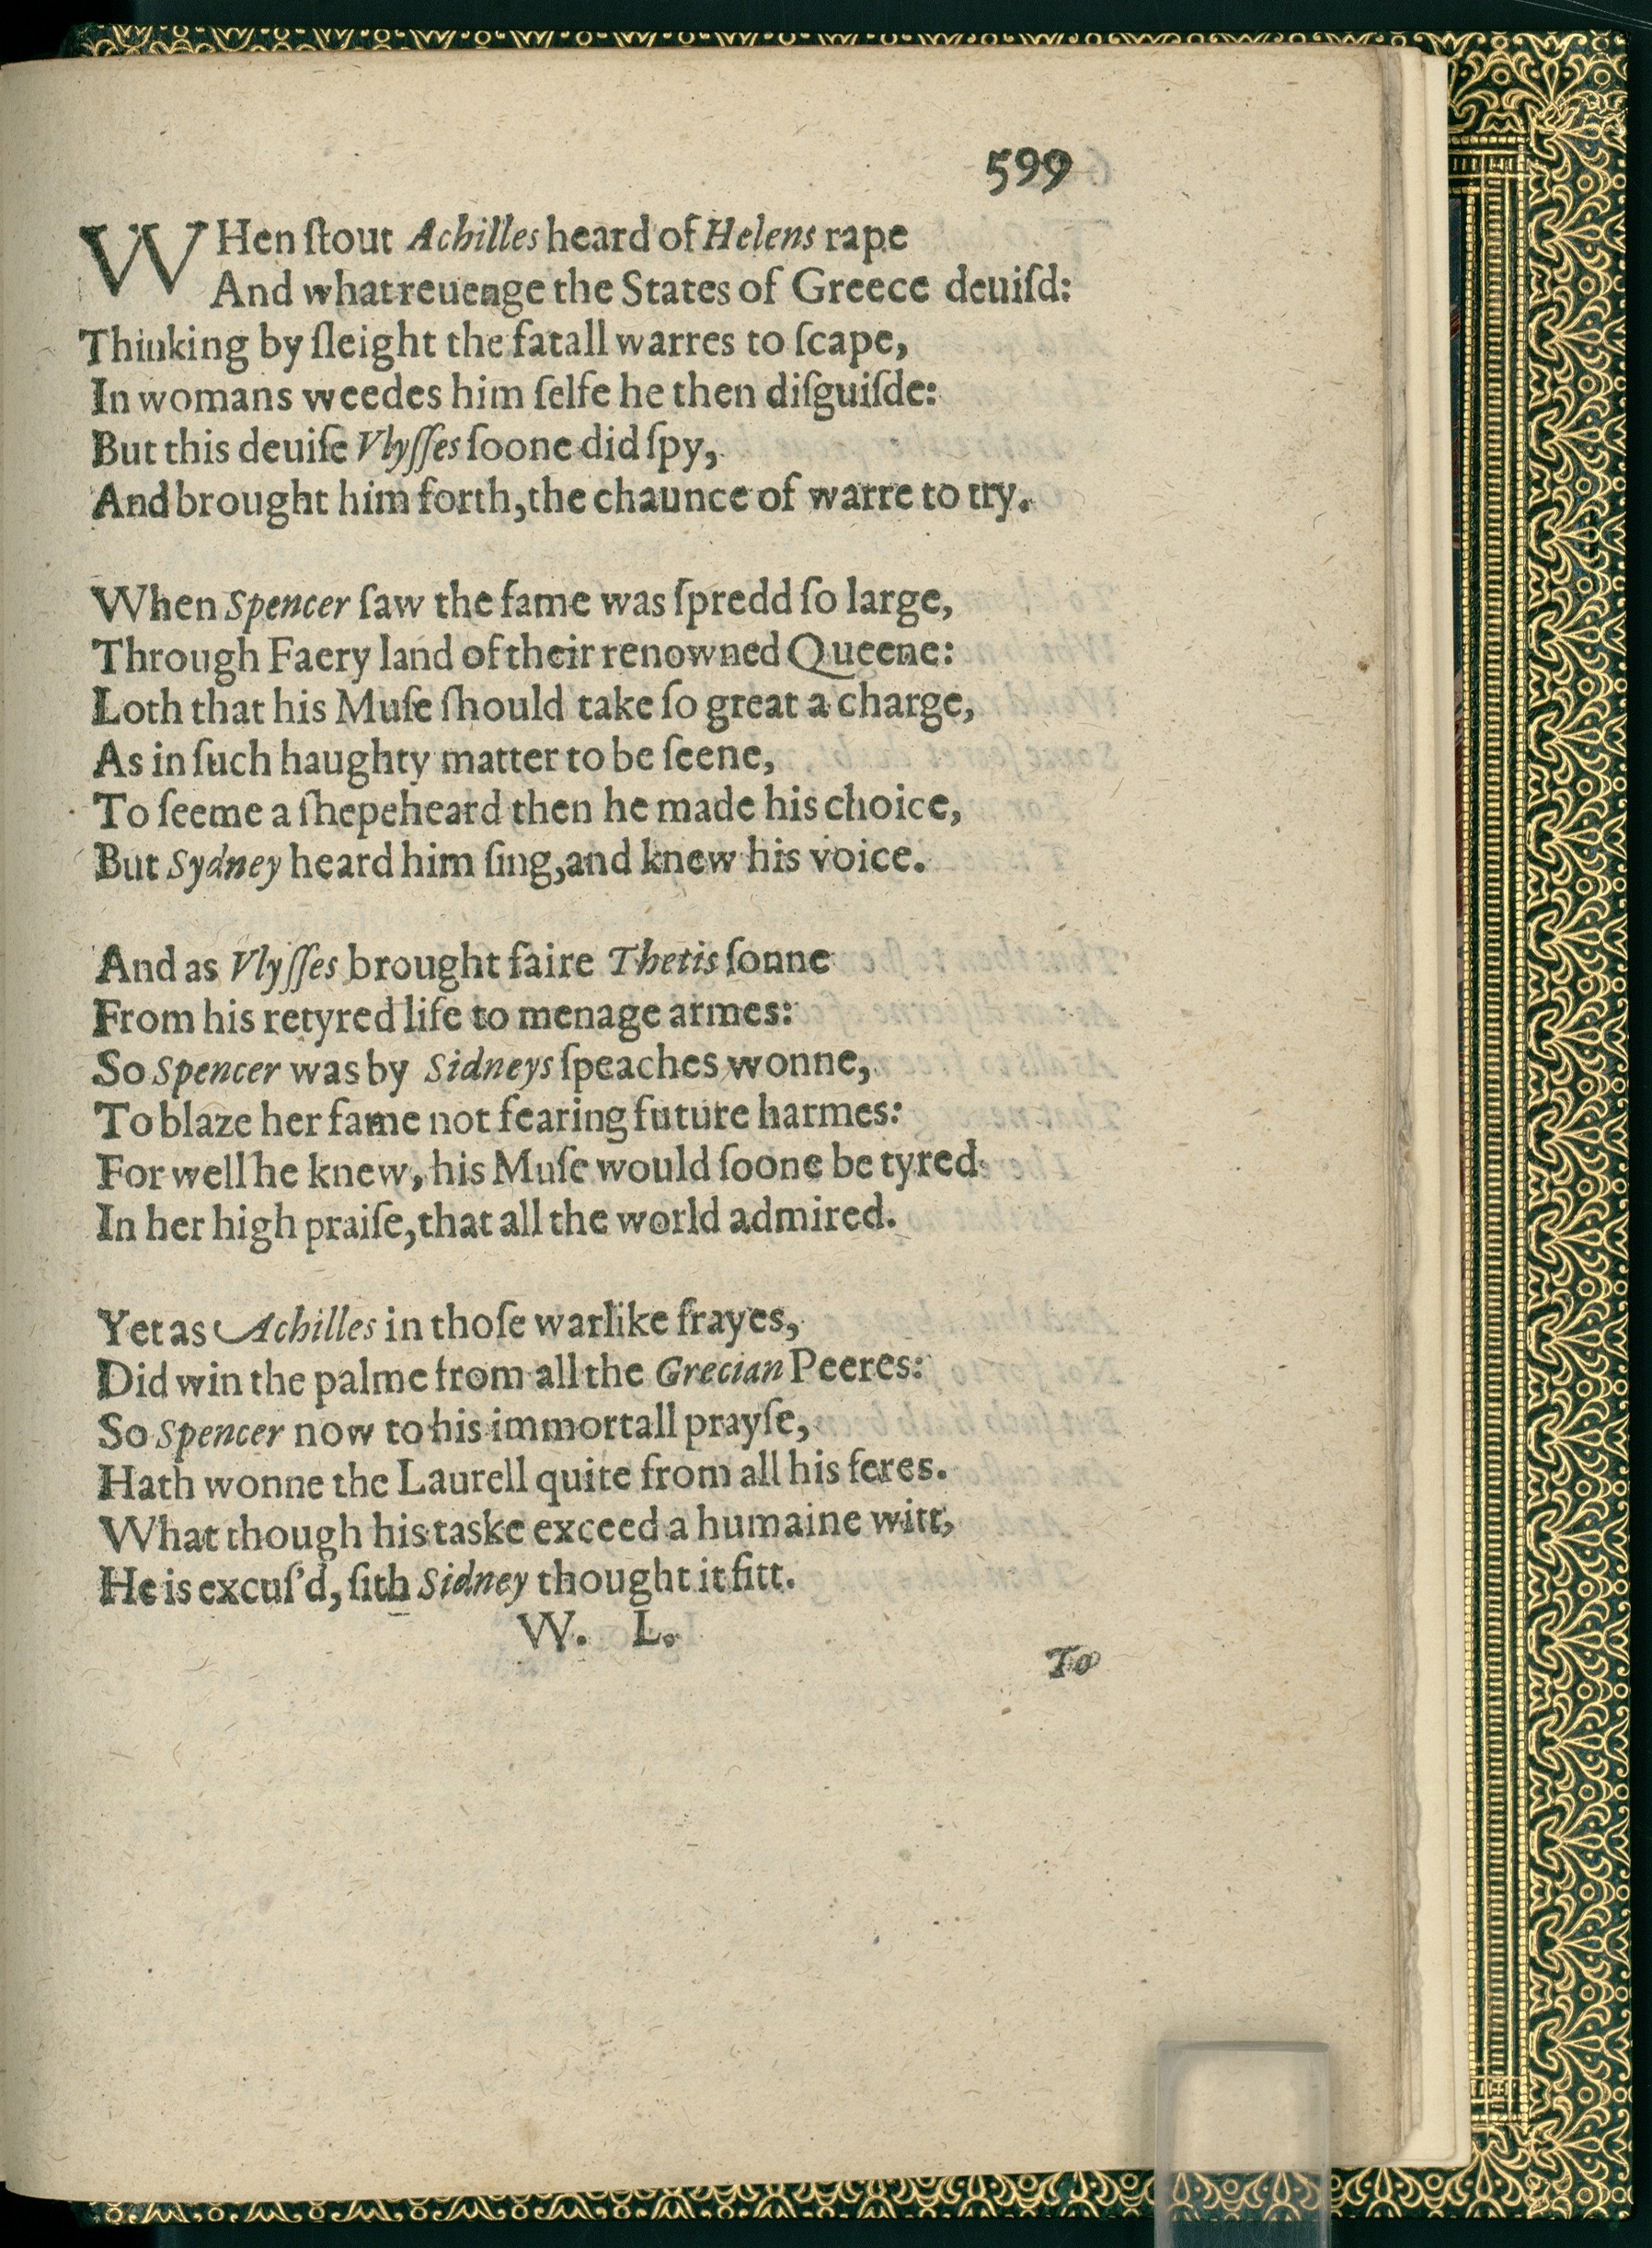 599
WHen ſtout Achilles heard of Helens rape
And what reuenge the States of Greece deuiſd:
Thinking by ſleight the fatall warres to ſcape,
In womans weedes him ſelfe he then diſguiſde:
But this deuiſe Vlyſſes ſoone did ſpy,
And brought him forth, the chaunce of warre to try.

When Spencer ſaw the fame was ſpredd ſo large,
Through Faery land of their renowned Queene:
Loth that his Muſe ſhould take ſo great a charge,
As in ſuch haughty matter to be ſeene,
To ſeeme a ſhepeheard then he made his choice,
But Sydney heard him ſing, and knew his voice.

And as Vlyſſes brought faire Thetis ſonne
From his retyred life to menage armes:
So Spencer was by Sidneys ſpeaches wonne,
To blaze her fame not fearing future harmes:
For well he knew, his Muſe would ſoone be tyred
In her high praiſe, that all the world admired.

Yet as Achilles in thoſe warlike frayes,
Did win the palme from all the Grecian Peeres:
So Spencer now to his immortall prayſe,
Hath wonne the Laurell quite from all his feres.
What though his taske exceed a humaine witt,
He is excuſ'd, ſith Sidney thought it fitt.
W. L.
To